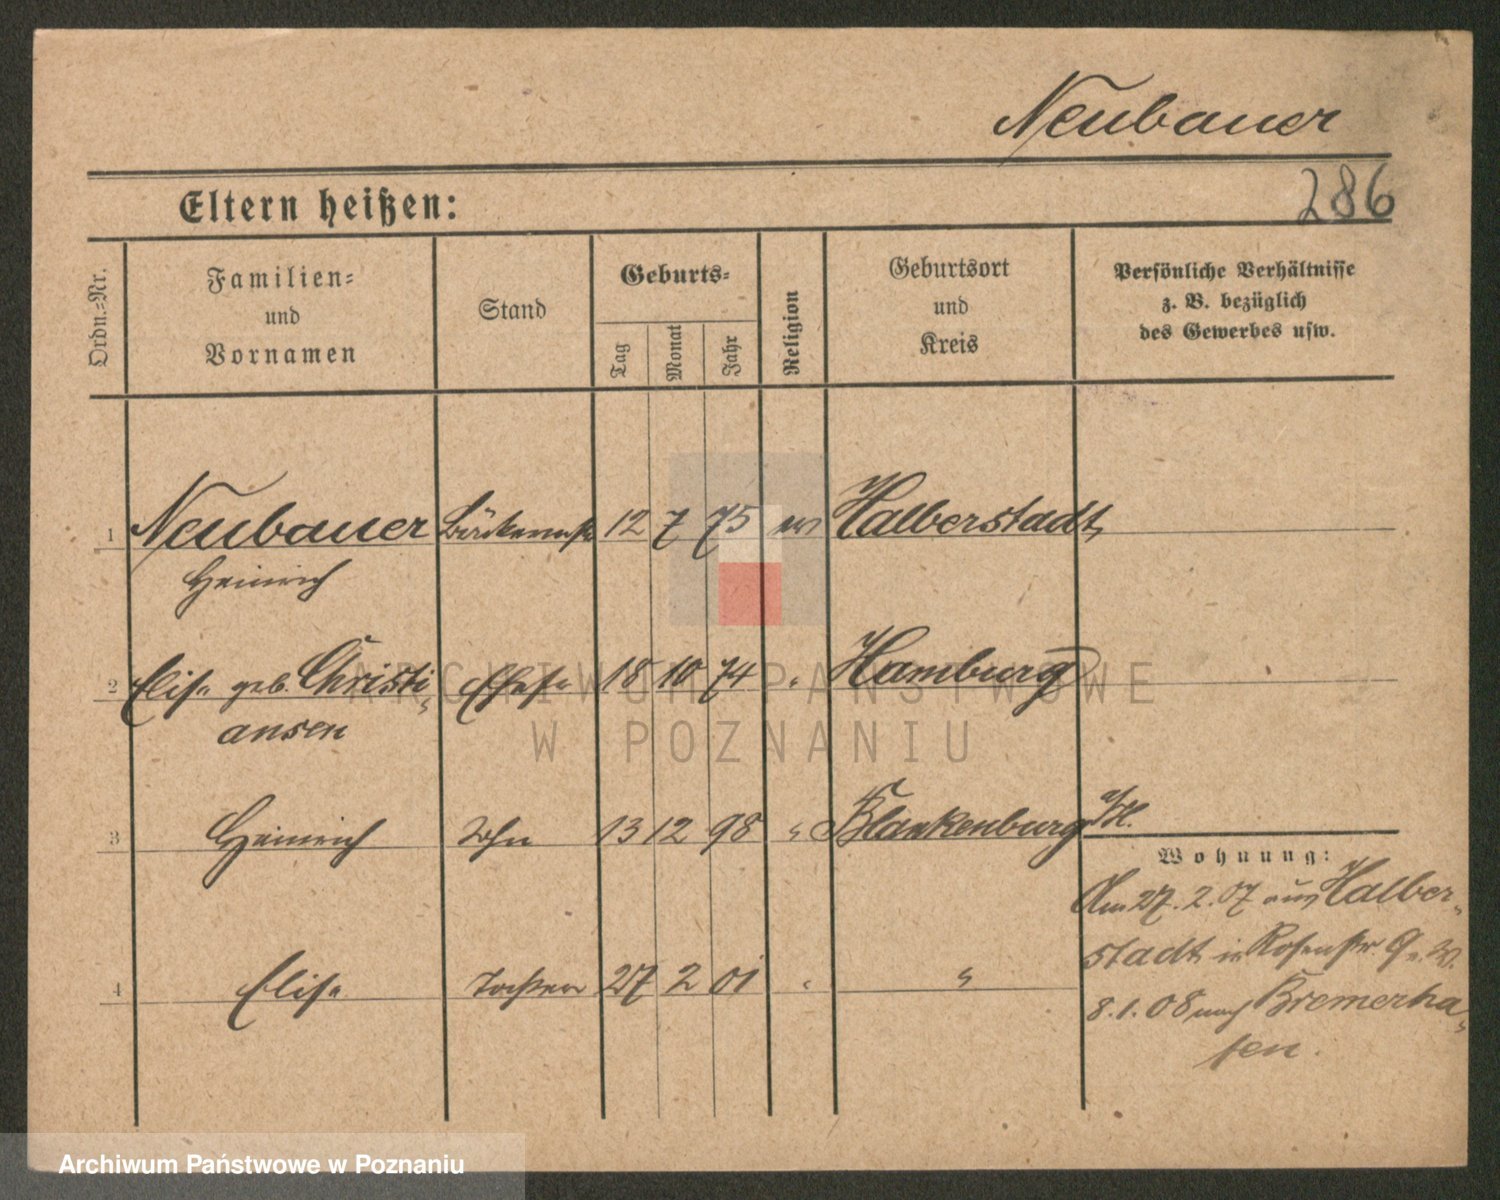 Neubauer
286
Eltern heißen:
Ordn.=Nr.
Familien=
und
Vornamen
Stand
Geburts=
Tag
Monat
Jahr
Religion
Geburtsort
und
Kreis
Persönliche Verhältnisse
z. B. bezüglich
des Gewerbes usw.
1 Neubauer 12 7 75 ev Halberstadt
Heinrich
2 Elise geb. Christi-
ansen
Ehefr 18 10 74 " Hamburg
3 Heinrich Sohn 13 12 98 " Blankenburg a/H.
4 Elise Tochter 27 2 01 " "
Wohnung:
Am 27. 2. 07 aus Halber-
stadt in Rosenstr. 9
8. 1. 08 nach Bremerha-
fen.
ARCHIWUM PAŃSTWOWE
W POZNANIU
Archiwum Państwowe w Poznaniu